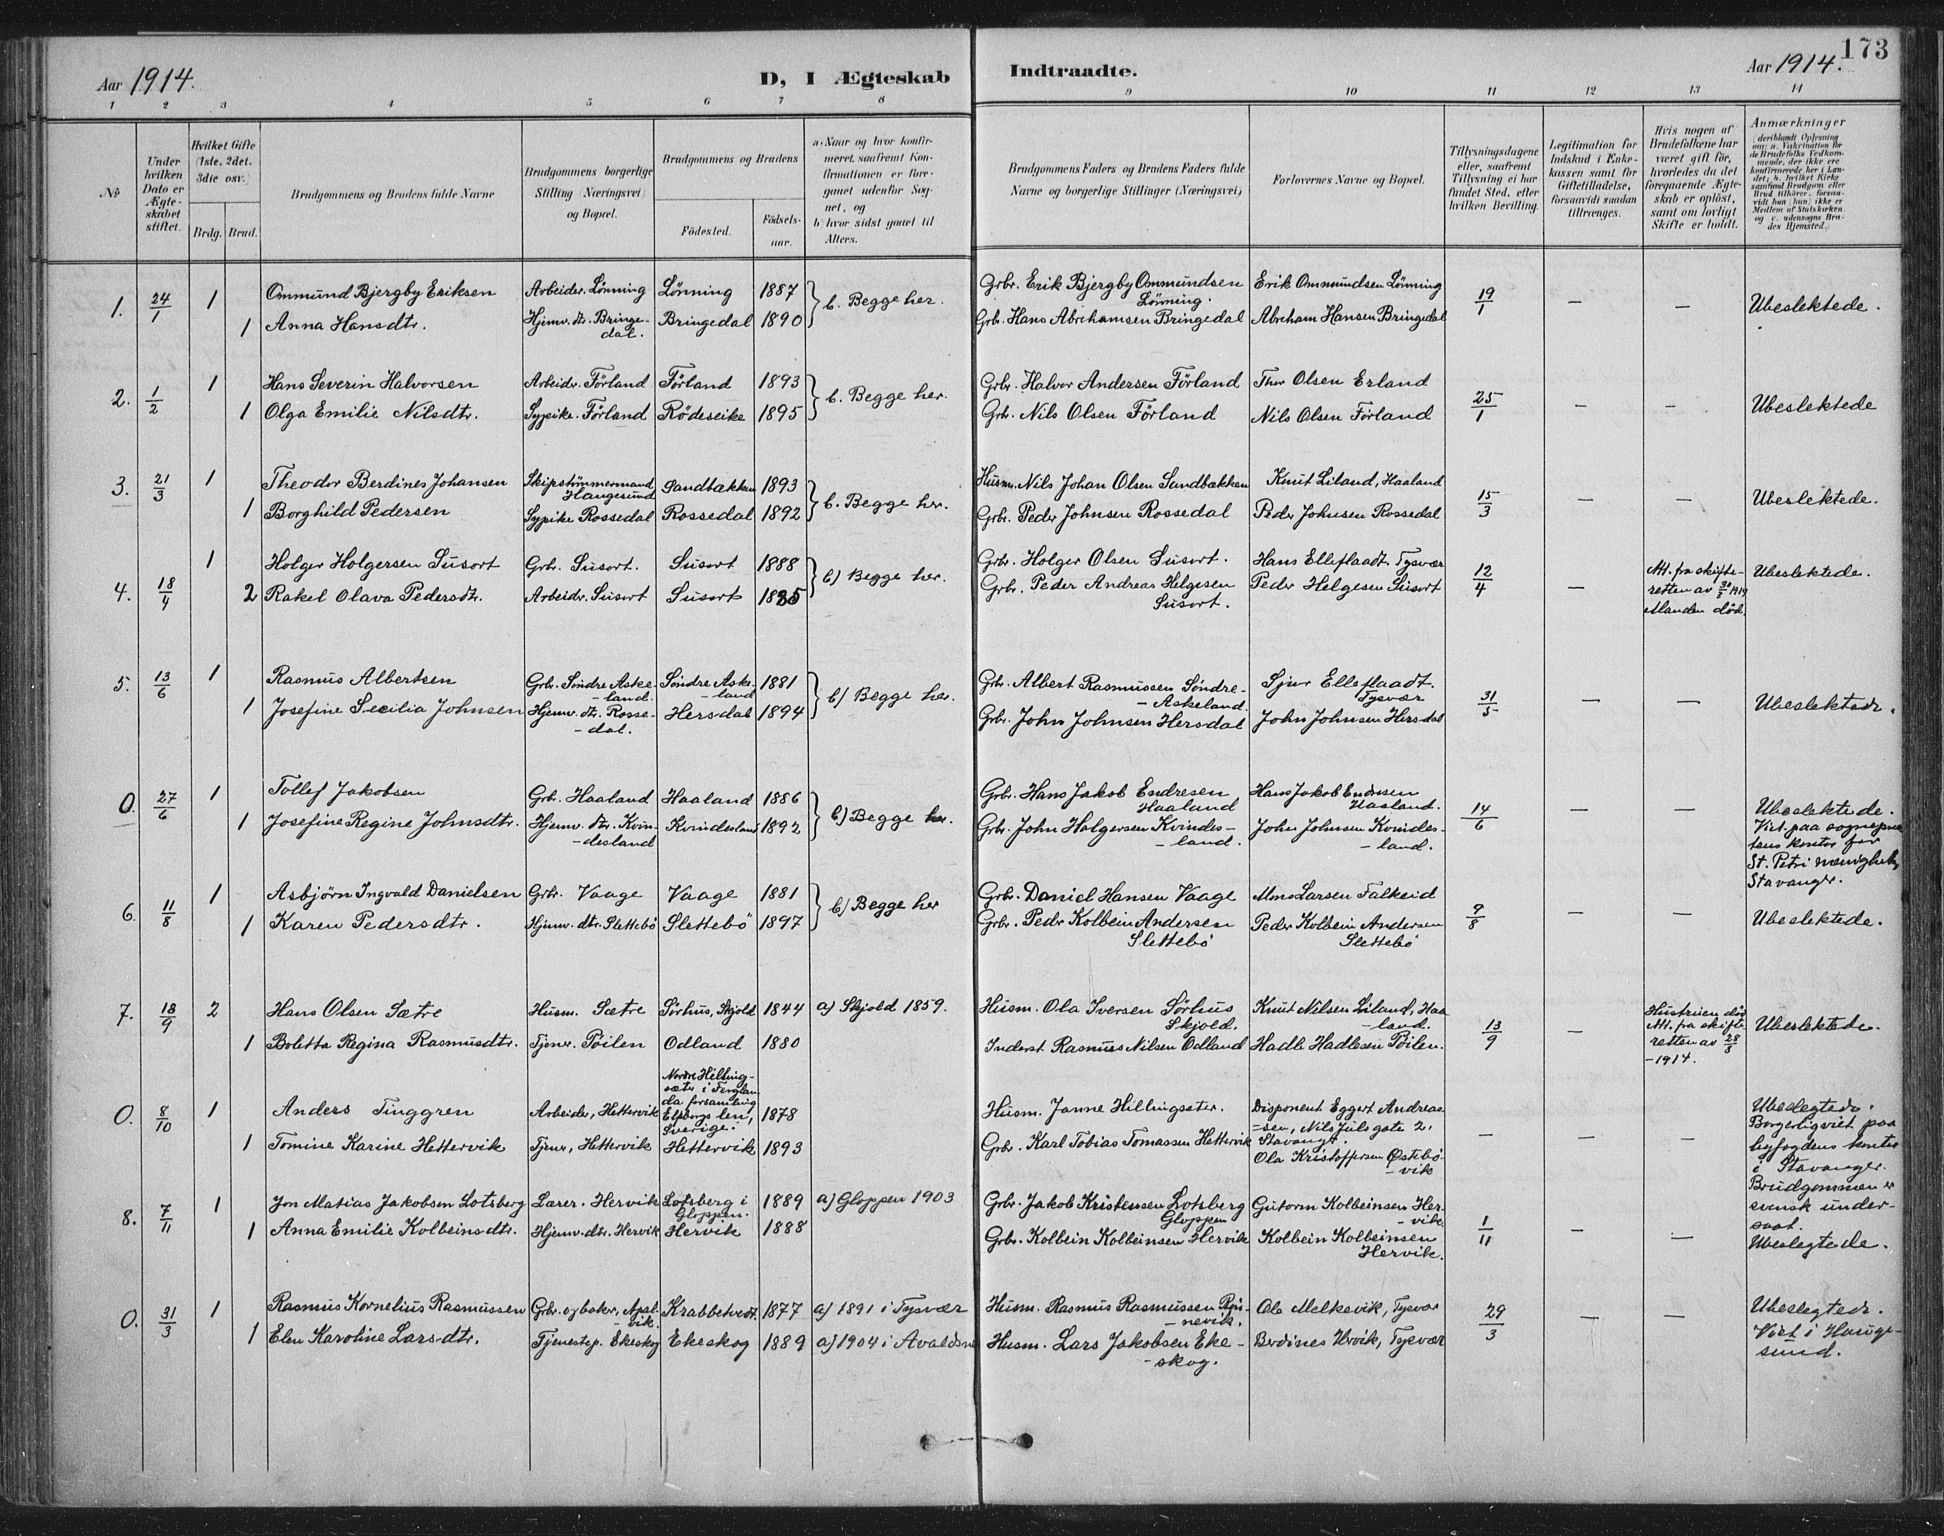 173
Aar 1914.
D, I Ægteskab
Indtraadte.
Aar 1914.
1 2 3 4 5 6 7 8 9 10 11 12 13 14
No
Under hvilken Dato er Ægteskabet stiftet.
Hvilket Gifte (1ste, 2det, 3die osv.)
Brdg. Brud.
Brudgommens og Brudens fulde Navne
Brudgommens borgerlige Stilling (Næringsvei) og Bopæl.
Brudgommens og Brudens
Fødested.
Fødselsaar.
a) Naar og hvor konfirmeret, saafremt Konfirmationen er foregaaet udenfor Sognet, og
b) hvor sidst gaaet til Alters.
Brudgommens Faders og Brudens Faders fulde Navne og borgerlige Stillinger (Næringsvei)
Forlovernes Navne og Bopæl.
Tillysningsdagene eller, saafremt Tillysning ei har fundet Sted, efter hvilken Bevilling.
Legitimation for Indskud i Enkekassen samt for Giftetilladelse, forsaavidt saadan tiltrænges.
Hvis nogen af Brudefolkene har været gift før, hvorledes da det foregaaende Ægteskab er opløst, samt om lovligt Skifte er holdt.
Anmærkninger
(deriblandt Oplysning om; a. Vakcination for de Brudefolks Vedkommende, der ikke ere konfirmerede her i Landet; b. hvilket Kirkesamfund Brudgom eller Brud tilhører, forsaavidt han (hun) ikke er Medlem af Statskirken, og c. udensogns Brudes Hjemsted.)
1. 24/1 1 Ommund Bjergby Eriksen Arbeider. Lønning Lønning 1887 b. Begge her. Grbr. Erik Bjergby Ommundsen Lønning. Erik Ommundsen Lønning 19/1 – – Ubeslektede.
1 Anna Hansdtr. Hjemv. dtr. Bringedal. Bringedal 1890 Grb. Hans Abrahamsen Bringedal Abraham Hansen Bringedal
2. 1/2 1 Hans Severin Halvorsen Arbeidr. Førland Førland 1893 b. Begge her. Grbr. Halvor Andersen Førland Thor Olsen Erland 25/1 – – Ubeslektede
1 Olga Emilie Nilsdtr. Sypike. Førland Rødeseike 1895 Grb. Nils Olsen Førland Nils Olsen Førland
3. 21/3 1 Theodor Berdines Johansen Skipstømmermand Haugesund Sandbækken 1893 b. Begge her. Husm. Nils Johan Olsen Sandbækken Knut Liland, Haaland 15/3 – – Ubeslektede.
1 Borghild Pedersen Sypike Rossedal Rossedal 1892 Grb. Peder Johnsen Rossedal Peder Johnsen Rossedal
4. 18/4 1 Holger Holgersen Susort Grb. Susort. Susort 1888 b) Begge her. Grb. Holger Olsen Susort. Hans Elleflaadt, Tysvær 12/4 – Att. fra skifteretten av 30/3 1914 Manden død. Ubeslektede.
2 Rakel Olava Pedersdtr. Arbeidr. Susort Susort 1885 Grb. Peder Andreas Helgesen Susort. Peder Helgesen Susort
5. 13/6 1 Rasmus Albertsen Grb. Søndre Askeland. Søndre Askeland 1881 b) Begge her. Grb. Albert Rasmussen Søndre-Askeland. Sjur Elleflaadt. Tysvær 31/5 – – Ubeslektede.
1 Josefine Secilia Johnsen Hjemv. dtr. Rossedal. Hersdal 1894 Grb. John Johnsen Hersdal John Johnsen Hersdal
0. 27/6 1 Tollef Jakobsen Grb. Haaland Haaland 1886 b) Begge her. Grb. Hans Jakob Endresen Haaland Hans Jakob Endresen Haaland. 14/6 – – Ubeslektede. Viet paa sogneprestens kontor for St. Petri menighet, Stavanger.
1 Josefine Regine Johnsdtr. Hjemv. dtr. Kvindesland Kvindesland 1892 Grb. John Holgersen Kvindesland. John Johnsen Kvindesland.
6. 11/8 1 Asbjørn Ingvald Danielsen Grb. Vaage Vaage 1881 b) Begge her Grb. Daniel Hansen Vaage Mons Larsen Falkeid 9/8 – – Ubeslektede.
1 Karen Pedersdtr. Hjemv. dtr. Slettebö Slettebö 1897 Grb. Pedr Kolbein Andersen Slettebö Peder Kolbein Andersen Slettebö
7. 18/9 2 Hans Olsen Sætre Husm. Sætre Sørhus, Skjold 1844 a) Skjold 1859. Husm. Ola Iversen Sørhus Skjold. Knut Nilsen Liland, Haaland. 13/9 – Hustruen død Att. fra skifteretten av 28/8 -1914. Ubeslektede.
1 Boletta Regina Rasmusdtr. Tjenr. Pøilen Odland 1880 Inderst Rasmus Nilsen Odland Hadle Hadlesen Pøilen.
0. 8/10 1 Anders Tinggren Arbeider, Hettervik Nordre Hillingsætr i Ferglanda forsamling Elfsborgs len, Sverige. 1878 Husm. Janne Hillingsæter. Disponent Eggert Andreassen, Nils Juls gate 2, Stavanger. – – – Ubeslegtede. Borgerlig viet paa byfogdens kontor i Stavanger. Brudgommen er svensk undersaat.
1 Tomine Karine Hettervik Tjenr, Hettervik Hettervik 1893 Grb. Karl Tobias Tomassen Hettervik Ola Kristoffersen Østebövik
8. 7/11 1 Jon Matias Jakobsen Lotsberg Lærer. Hervik Lotsberg i Gloppen. 1889 a) Gloppen 1903 Grb. Jakob Kristensen Lotsberg Gloppen Gutorm Kolbeinsen Hervik. 1/11 – – Ubeslegtede.
1 Anna Emilie Kolbeinsdtr. Hjemv. dtr. Hervik Hervik 1888 Grb. Kolbein Kolbeinsen Hervik Kolbein Kolbeinsen Hervik.
0. 31/3 1 Rasmus Kornelius Rasmussen Grbr. og baker, Apalvik. Krabbetvedt 1877 a) 1891 i Tysvær Husm. Rasmus Rasmussen Ole Melkevik, Tysvær 29/3 – – Ubeslegtede. Viet i Haugesund.
1 Elen Karoline Larsdtr. Tjenestep. Ekeskog Ekeskog 1889 a) 1904 i Avaldsnes Husm. Lars Jakobsen Ekeskog. Berdines Hervik, Tysvær